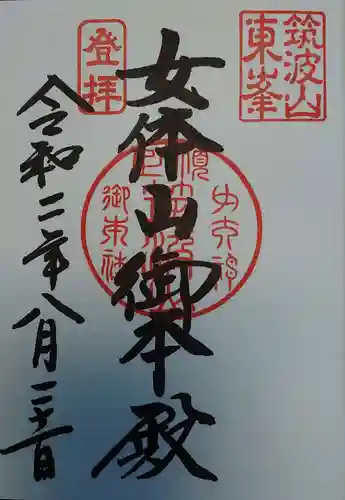 筑波山
東峯
登拝
女体山御本殿
令和二年八月二十一日